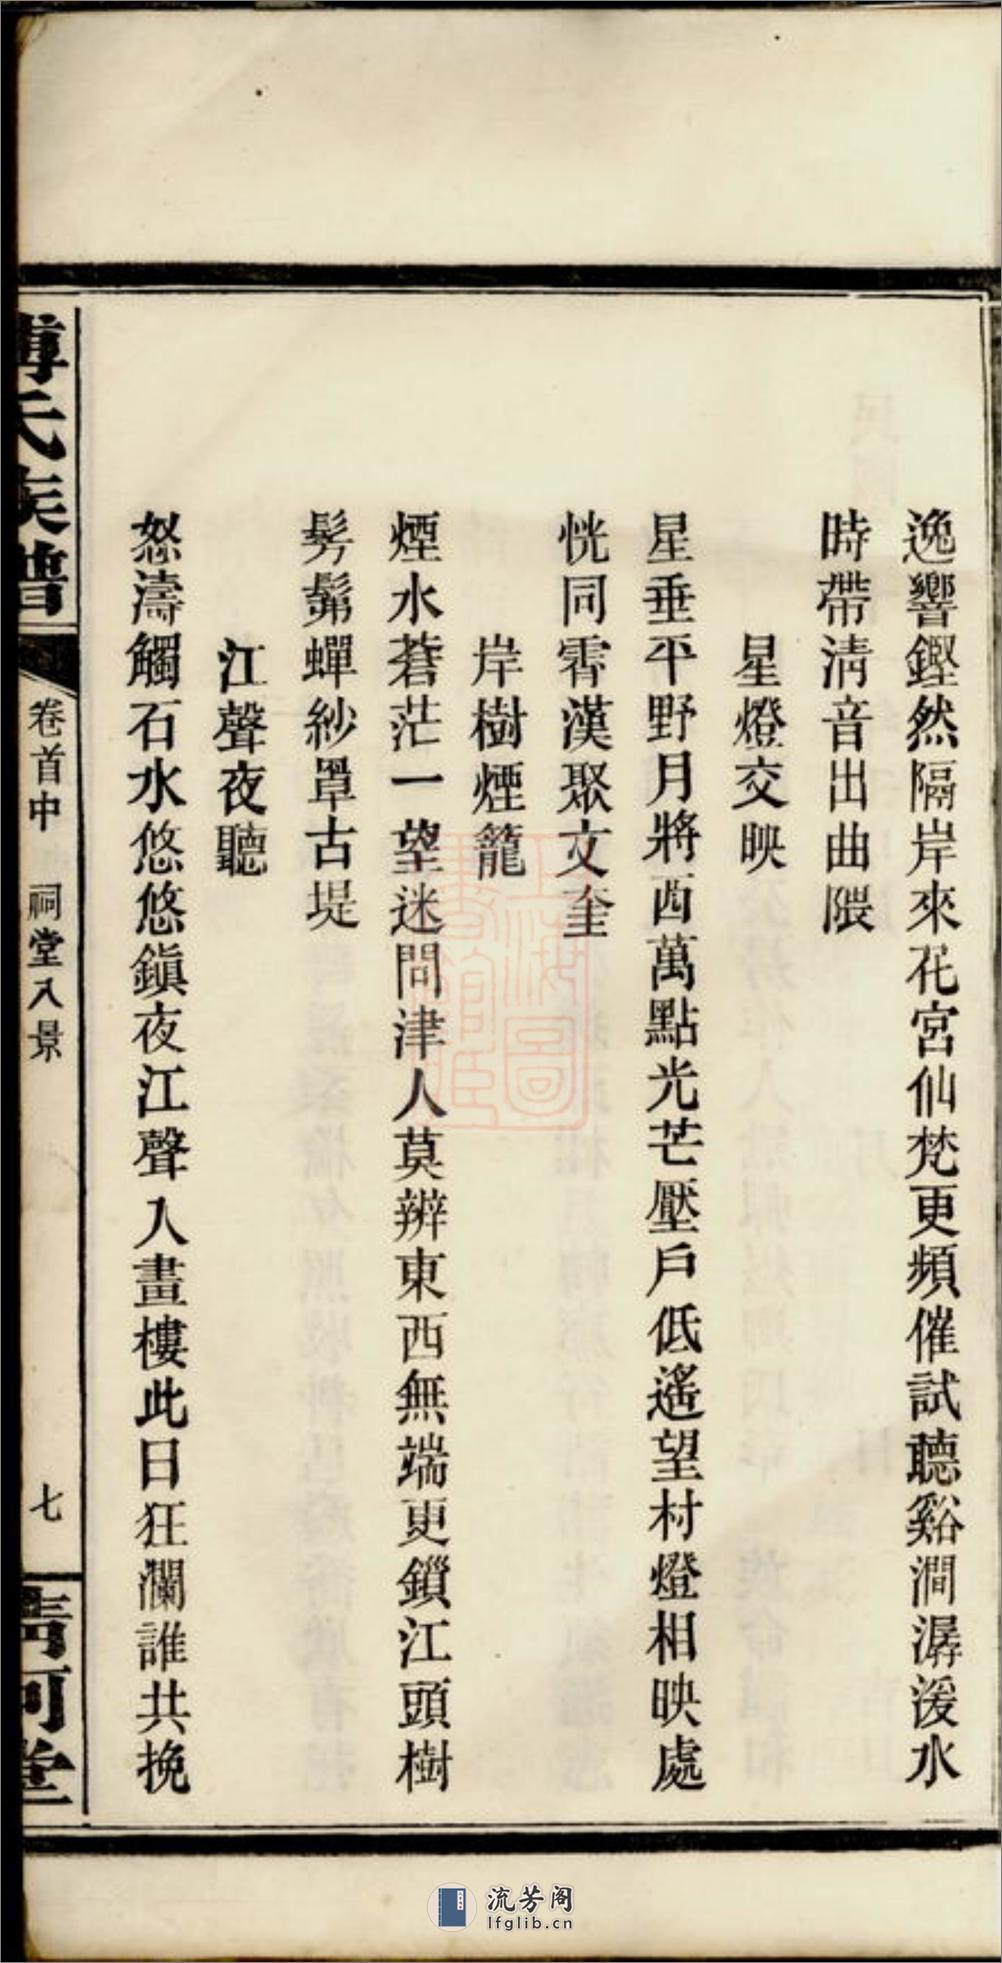 逸響鏗然隔岸來花宮仙梵更頻催試聽谿澗潺湲水
時帶淸音出曲隈
星燈交映
星垂平野月將西萬點光芒壓戶低遙望村燈相映處
恍同霄漢聚文奎
岸樹煙籠
煙水蒼茫一望迷問津人莫辨東西無端更鎖江頭樹
髣髴蟬紗罩古堤
江聲夜聽
怒濤觸石水悠悠鎭夜江聲入畫樓此日狂瀾誰共挽
傅氏族譜
卷首中 祠堂八景
七
淸河堂
流芳阁
lfglib.cn